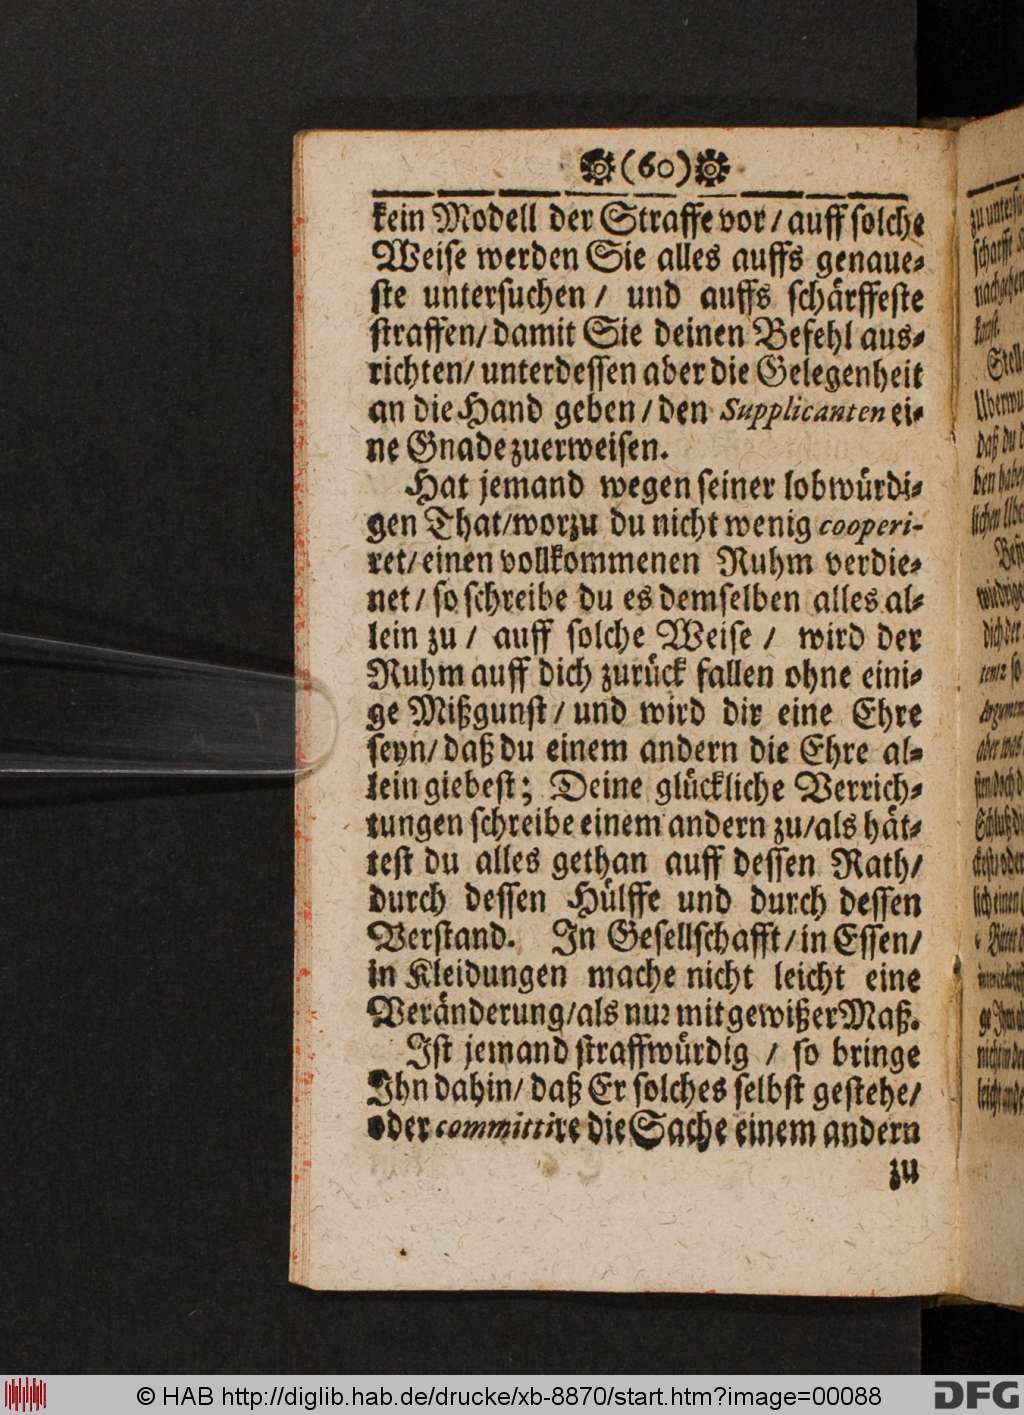 (60)
kein Modell der Straffe vor / auff solche
Weise werden Sie alles auffs genaue-
ste untersuchen / und auffs schärffeste
straffen / damit Sie deinen Befehl aus-
richten / unterdessen aber die Gelegenheit
an die Hand geben / den Supplicanten ei-
ne Gnade zuerweisen.
Hat jemand wegen seiner lobwürdi-
gen That / worzu du nicht wenig cooperi-
ret / einen vollkommenen Ruhm verdie-
net / so schreibe du es demselben alles al-
lein zu / auff solche Weise / wird der
Ruhm auff dich zurück fallen ohne eini-
ge Mißgunst / und wird dir eine Ehre
seyn / daß du einem andern die Ehre al-
lein giebest; Deine glückliche Verrich-
tungen schreibe einem andern zu / als hät-
test du alles gethan auff dessen Rath /
durch dessen Hülffe und durch dessen
Verstand. In Gesellschafft / in Essen /
in Kleidungen mache nicht leicht eine
Veränderung / als nur mit gewißer Maß.
Ist jemand straffwürdig / so bringe
Ihn dahin / daß Er solches selbst gestehe /
oder committire die Sache einem andern
zu
© HAB http://diglib.hab.de/drucke/xb-8870/start.htm?image=00088
DFG